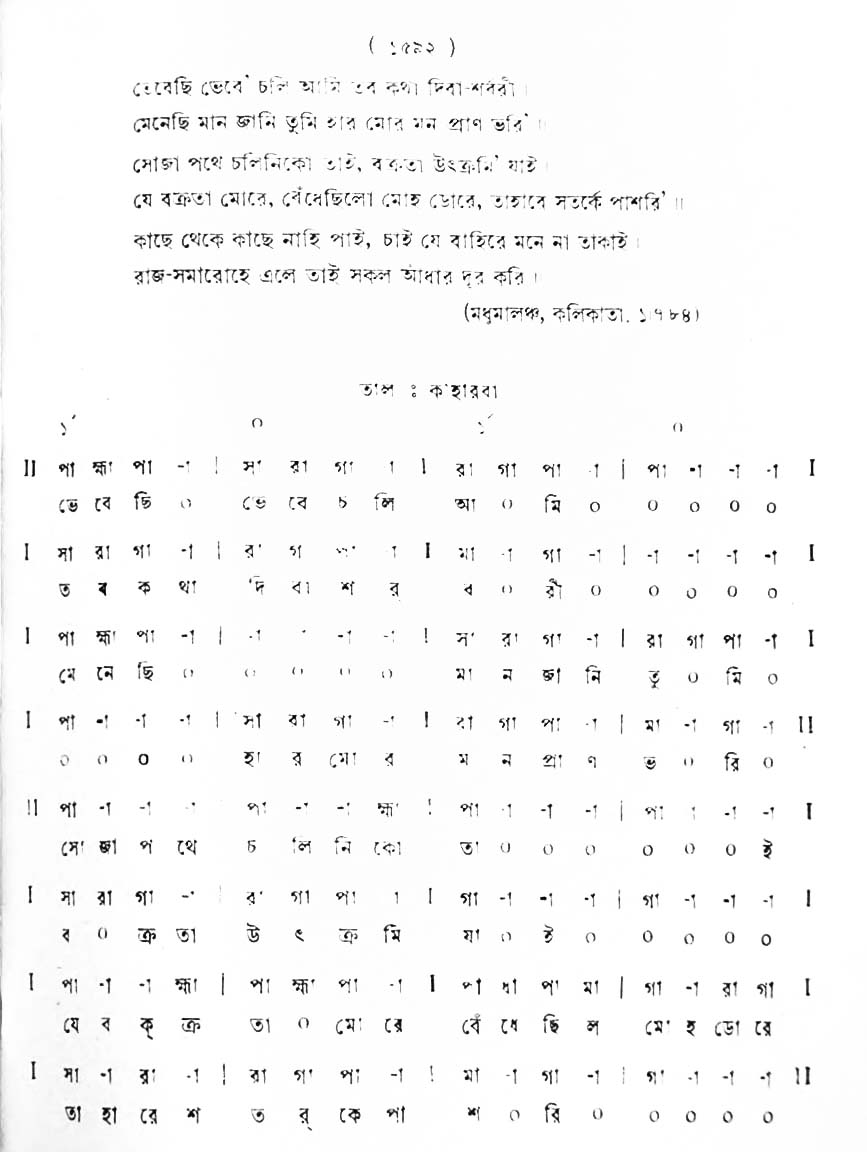 ( ১৫৯২ )
ভেবেছি ভেবে' চলি আমি তব কথা দিবা-শর্বরী।
মেনেছি মান জানি তুমি হার মোর মন প্রাণ ভরি'॥
সোজা পথে চলিনিকো তাই, বক্রতা উৎক্রমি' যাই।
যে বক্রতা মোরে, বেঁধেছিলো মোহ ডোরে, তাহারে সতর্কে পাশরি'॥
কাছে থেকে কাছে নাহি পাই, চাই যে বাহিরে মনে না তাকাই।
রাজ-সমারোহে এলে তাই সকল আঁধার দূর করি।
(মধুমালঞ্চ, কলিকাতা, ১।৭৮৪)
তাল : কাহারবা
১´ ০ ১´ ০
II পা হ্মা পা -া | সা রা গা া I রা গা পা -া | পা -া -া -া I
ভে বে ছি ০ ভে বে চ লি আ ০ মি ০ ০ ০ ০ ০
I সা রা গা -া | রা গা পা া I মা -া গা -া | -া -া -া -া I
ত ব ক থা দি বা শ র্ ব ০ রী ০ ০ ০ ০ ০
I পা হ্মা পা -া | -া -া -া -া I সা রা গা -া | রা গা পা -া I
মে নে ছি ০ ০ ০ ০ ০ মা ন জা নি তু ০ মি ০
I পা -া -া -া | সা রা গা -া I রা গা পা -া | মা -া গা -া II
০ ০ ০ ০ হা র মো র ম ন প্রা ণ ভ ০ রি ০
II পা -া -া -া পা -া -া হ্মা I পা -া -া -া | পা া -া -া I
সো জা প থে চ লি নি কো তা ০ ০ ০ ০ ০ ০ ই
I সা রা গা -া রা গা পা া I গা -া -া -া | গা -া -া -া I
ব ০ ক্র তা উ ৎ ক্র মি যা ০ ই ০ ০ ০ ০ ০
I পা -া -া হ্মা | পা হ্মা পা -া I পা ধা পা মা | গা -া রা গা I
যে ব ক্ ক্র তা ০ মো রে বেঁ ধে ছি ল মো হ ডো রে
I সা -া রা -া | রা গা পা -া I মা -া গা -া | গা -া -া -া II
তা হা রে শ ত র্ কে পা শ ০ রি ০ ০ ০ ০ ০